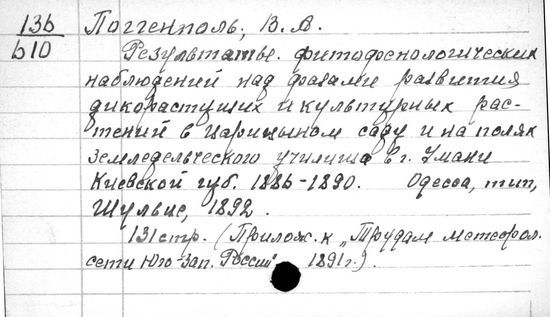 136 Поггенполь, В. А.
610 Результаты фитофенологических
наблюдений над фазами развития
дикорастущих и культурных рас-
тений в Царицыном саду и на полях
земледельческого училища в г. Умани
Киевской губ. 1886-1890. Одесса, тип,
Шульце, 1892.
131 стр. (Прилож. к „Трудам метеорол.
сети Юго-Зап. России" 1891 г.).